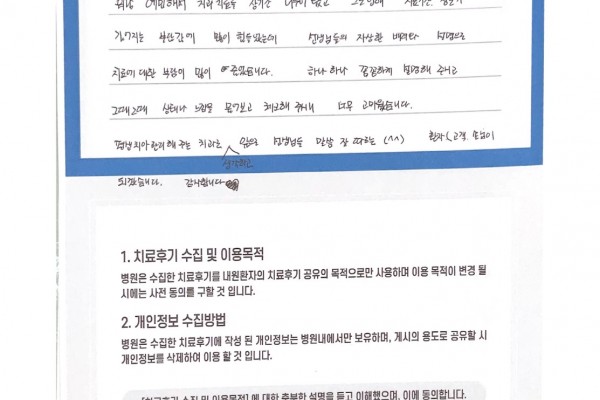 워낙 예민해서 치과 치료를 장기간 나누어 받고 그로 인해
갖가지는 불안감에 많이 힘들었는데 선생님들의 자상한 배려와 설명으로
치료에 대한 부담이 많이 줄었습니다. 하나 하나 꼼꼼하게 설명해 주시고
그때그때 상태나 느낌을 물어보고 체크해 주셔서 너무 고마웠습니다.
평생 치아 관리 해 주는 치과로 생각하고 앞으로 선생님들 말씀 잘 따르는 (^^) 환자(고객, 손님)이
되겠습니다. 감사합니다
1. 치료후기 수집 및 이용목적
병원은 수집한 치료후기를 내원환자의 치료후기 공유의 목적으로만 사용하며 이용 목적이 변경 될
시에는 사전 동의를 구할 것 입니다.
2. 개인정보 수집방법
병원은 수집한 치료후기에 작성 된 개인정보는 병원내에서만 보유하며, 게시의 용도로 공유할 시
개인정보를 삭제하여 이용 할 것 입니다.
[치료후기 수집 및 이용목적] 에 대한 충분한 설명을 듣고 이해했으며, 이에 동의합니다.